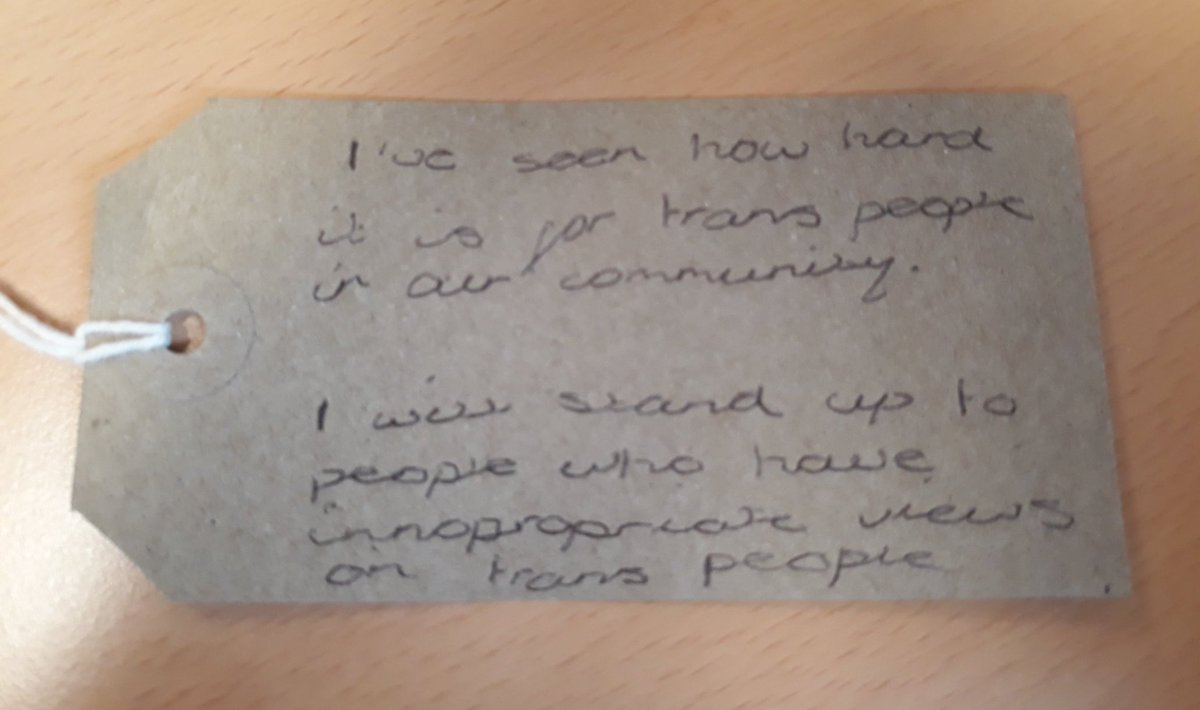 I've seen how hard
it is for trans people
in our community.
I will stand up to
people who have
innapropriate views
on trans people